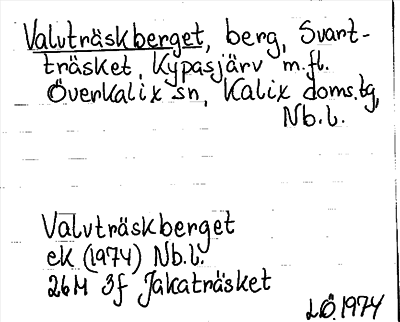 Valvträskberget, berg, Svart-
träsket, Kypasjärv m.fl.
Överkalix sn, Kalix doms.tg,
Nb.l.
Valvträskberget
ek (1974) Nb.l.
26M 3f Jakaträsket
LÖ 1974